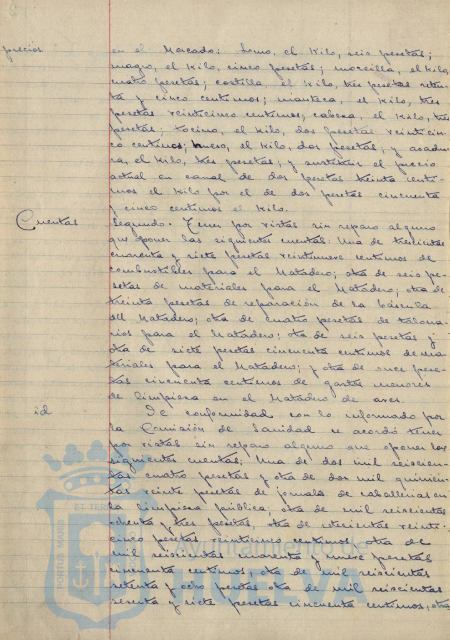 precios en el Mercado: Lomo, el kilo, seis pesetas;
magro, el kilo, cinco pesetas; morcilla, el kilo,
cuatro pesetas; costilla, el kilo, tres pesetas seten-
ta y cinco centimos; manteca, el kilo, tres
pesetas veinticinco centimos, cabeza, el kilo, tres
pesetas; tocino, el kilo, dos pesetas veinticin-
co centimos; hueso, el kilo, dos pesetas; y asadu-
ra, el kilo, tres pesetas; y sustituir el precio
actual en canal de dos pesetas treinta centi-
mos el kilo por el de dos pesetas cincuenta
y cinco centimos el kilo.
Cuentas Segundo. Tener por vistas sin reparo alguno
que oponer las siguientes cuentas: Una de trescientas
cuarenta y siete pesetas veintinueve centimos de
combustibles para el Matadero; otra de seis pe-
setas de materiales para el Matadero; otra de
treinta pesetas de reparación de la báscula
del Matadero; otra de cuatro pesetas de talona-
rios para el Matadero; otra de seis pesetas y
otra de siete pesetas cincuenta centimos de ma-
teriales para el Matadero; y otra de once pese-
tas cincuenta centimos de gastos menores
de limpieza en el Matadero de aves.
id De conformidad con lo informado por
la Comisión de Sanidad se acordó tener
por vistas sin reparo alguno que oponer las
siguientes cuentas; Una de dos mil seiscien-
tas cuatro pesetas y otra de dos mil quinien-
tas veinte pesetas de jornales de caballerias en
la limpieza pública, otra de mil seiscientas
ochenta y tres pesetas, otra de veinti-
cinco pesetas veinticinco centimos, otra de
mil seiscientas cuarenta y nueve pesetas
cincuenta centimos, otra de mil seiscientas
setenta y ocho pesetas otra de mil seiscientas
sesenta y siete pesetas cincuenta centimos, otra
Ayuntamiento de
HUELVA